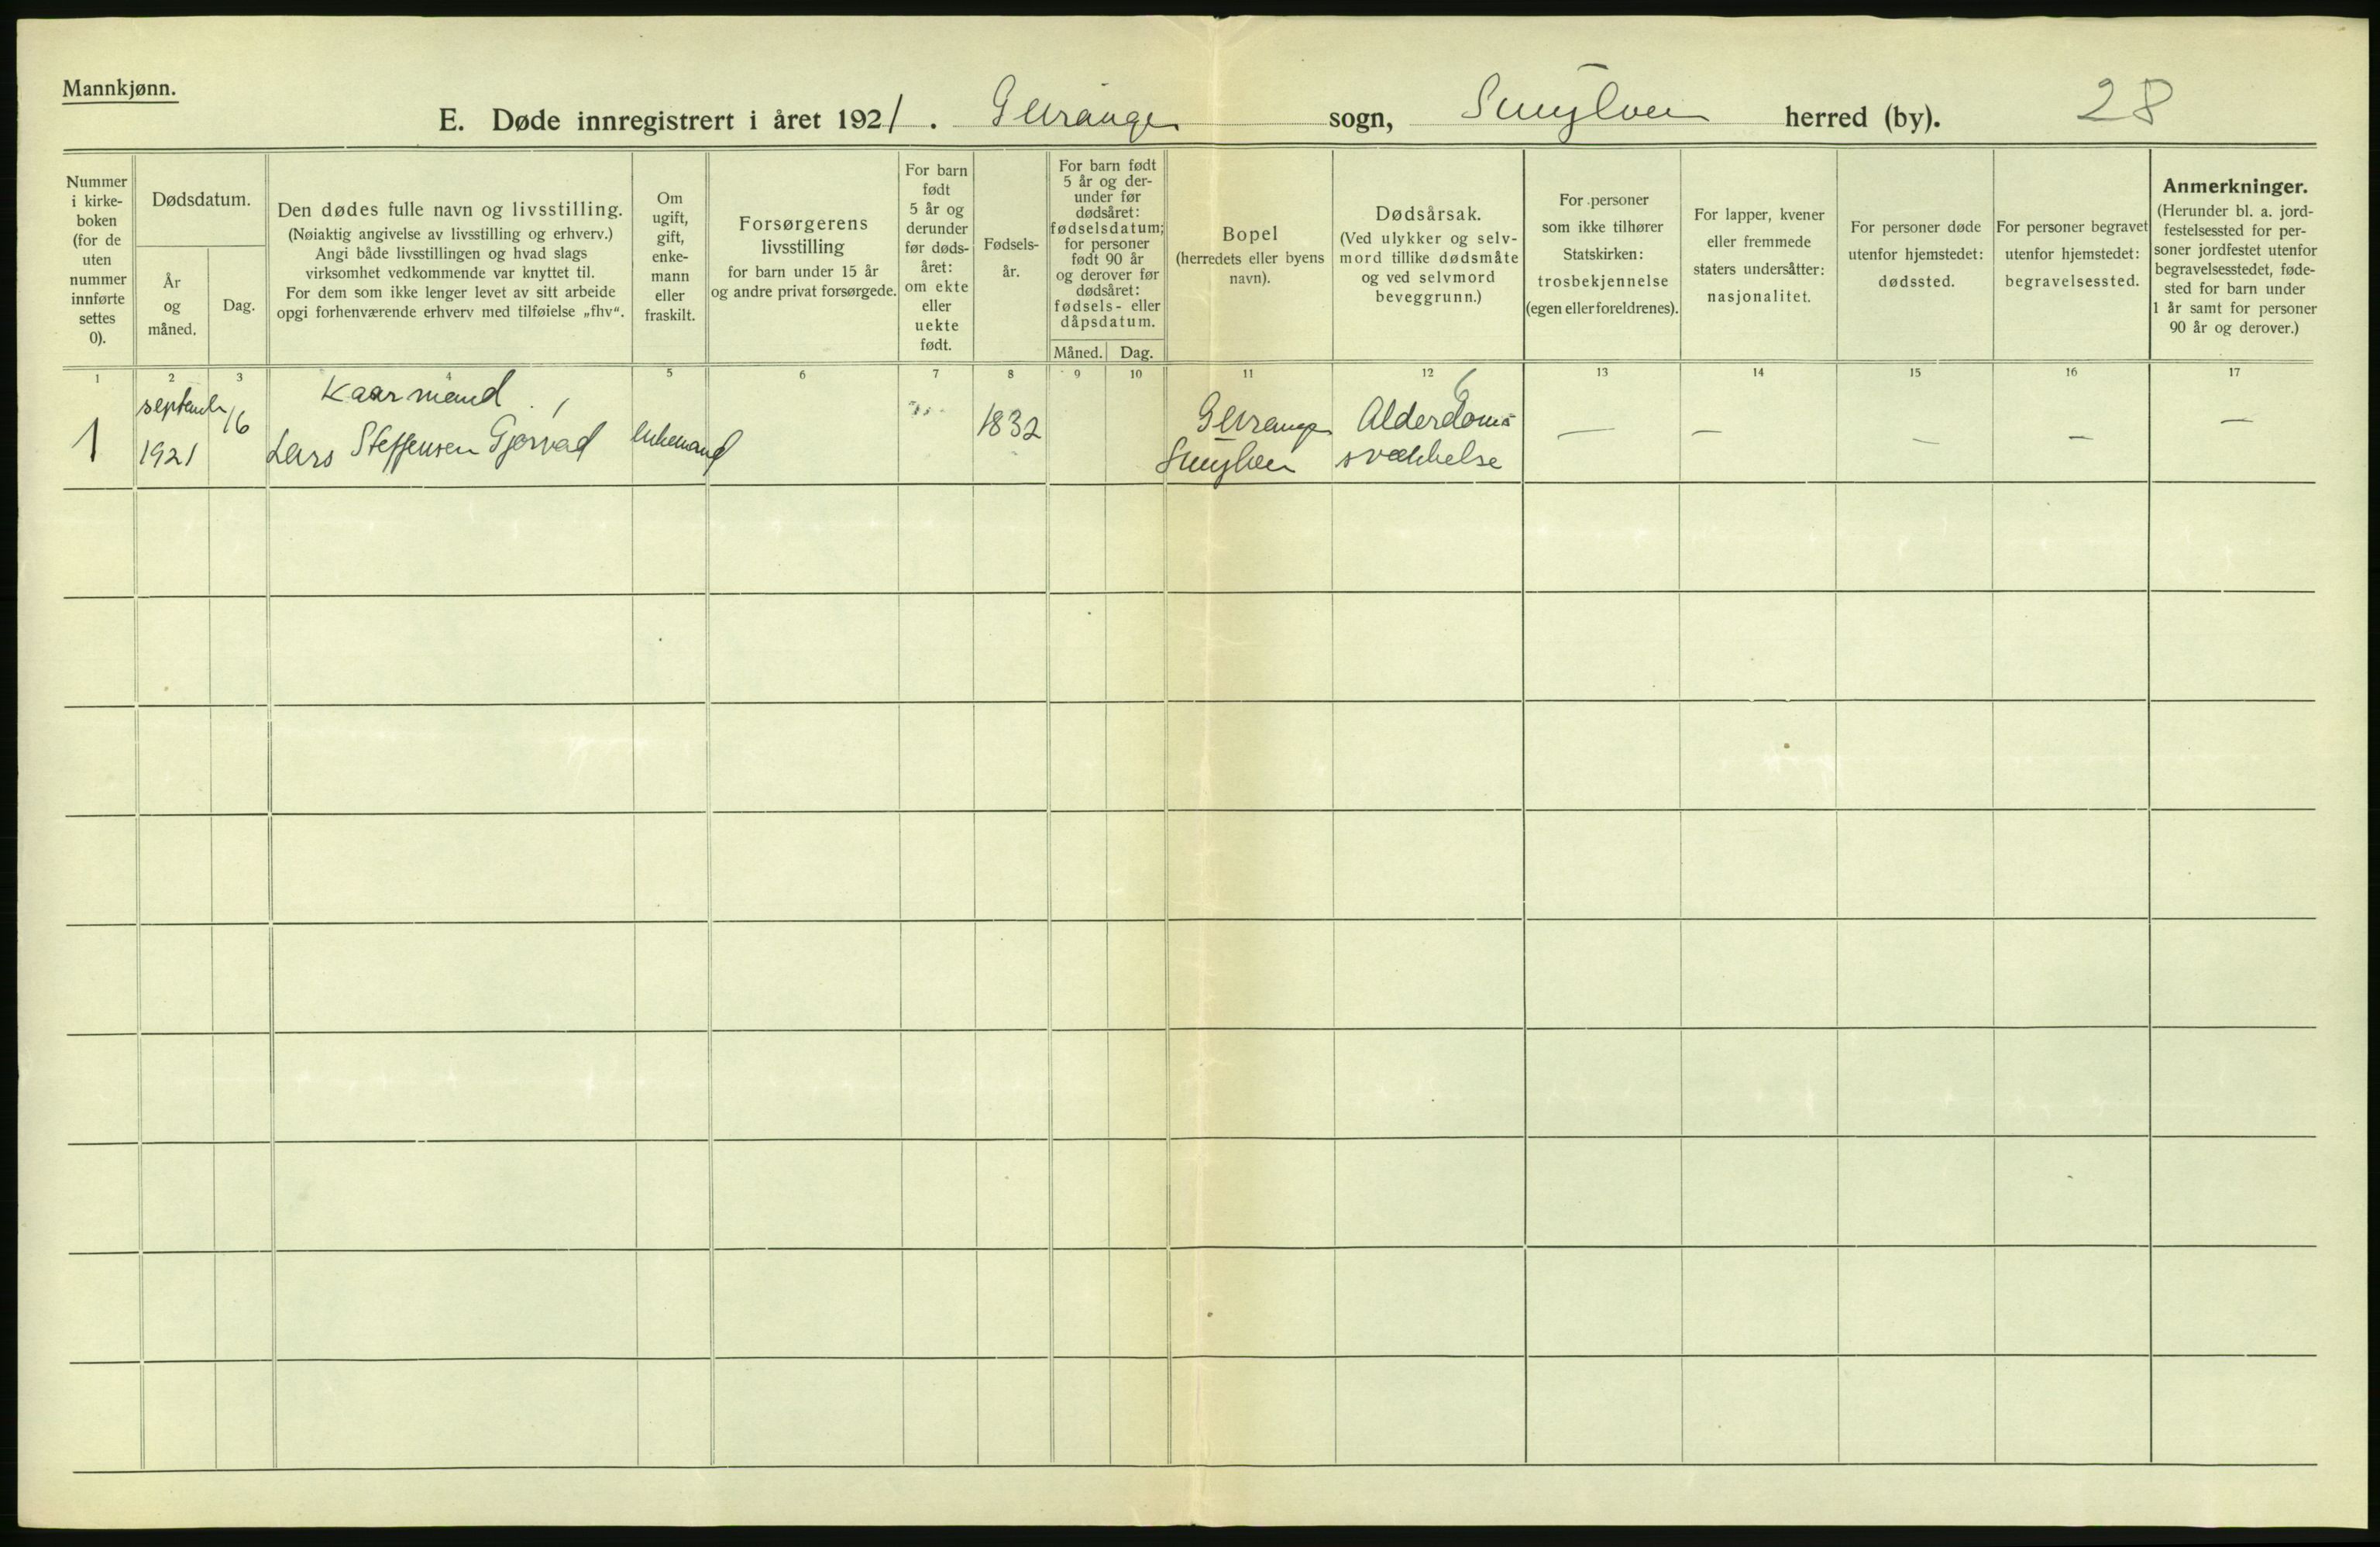 Mannkjønn.
E. Døde innregistrert i året 1921. Geiranger sogn, Sunylven herred (by). 28
Nummer
i kirke-
boken
(for de
uten
nummer
innførte
settes
0).
Dødsdatum.
År
og
måned.
Dag.
Den dødes fulle navn og livsstilling.
(Nøiaktig angivelse av livsstilling og erhverv.)
Angi både livsstillingen og hvad slags
virksomhet vedkommende var knyttet til.
For dem som ikke lenger levet av sitt arbeide
opgi forhenværende erhverv med tilføielse „fhv“.
Om
ugift,
gift,
enke-
mann
eller
fraskilt.
Forsørgerens
livsstilling
for barn under 15 år
og andre privat forsørgede.
For barn
født
5 år og
derunder
før døds-
året:
om ekte
eller
uekte
født.
Fødsels-
år.
For barn født
5 år og der-
under før
dødsåret:
fødselsdatum;
for personer
født 90 år
og derover før
dødsåret:
fødsels- eller
dåpsdatum.
Måned. Dag.
Bopel
(herredets eller byens
navn).
Dødsårsak.
(Ved ulykker og selv-
mord tillike dødsmåte
og ved selvmord
beveggrunn.)
For personer
som ikke tilhører
Statskirken:
trosbekjennelse
(egen eller foreldrenes).
For lapper, kvener
eller fremmede
staters undersåtter:
nasjonalitet.
For personer døde
utenfor hjemstedet:
dødssted.
For personer begravet
utenfor hjemstedet:
begravelsessted.
Anmerkninger.
(Herunder bl. a. jord-
festelsessted for per-
soner jordfestet utenfor
begravelsesstedet, føde-
sted for barn under
1 år samt for personer
90 år og derover.)
1 2 3 4 5 6 7 8 9 10 11 12 13 14 15 16 17
1
september
1921
16
Kaarmand
Lars Steffensen Gjørvad
Enkemand
1832
Geiranger
Sunylven
6
Alderdoms
svækkelse
— — — — —